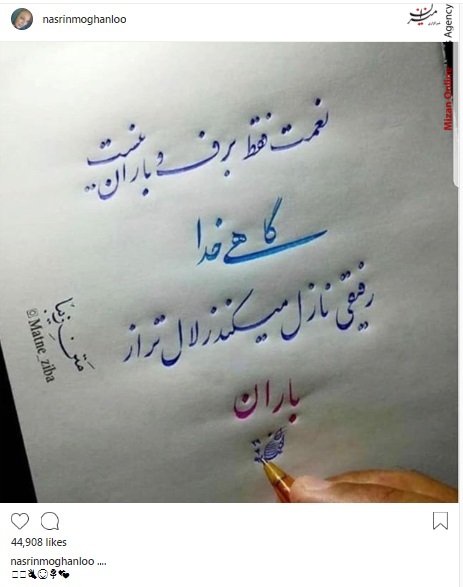 nasrinmoghanloo
میزان
Mizan Online News Agency
نعمت فقط برف و باران نیست..
گاهے خدا
رفیقی نازل میکند زلال تر از
باران
متن زیبا
©Matne_ziba
44,908 likes
nasrinmoghanloo ....